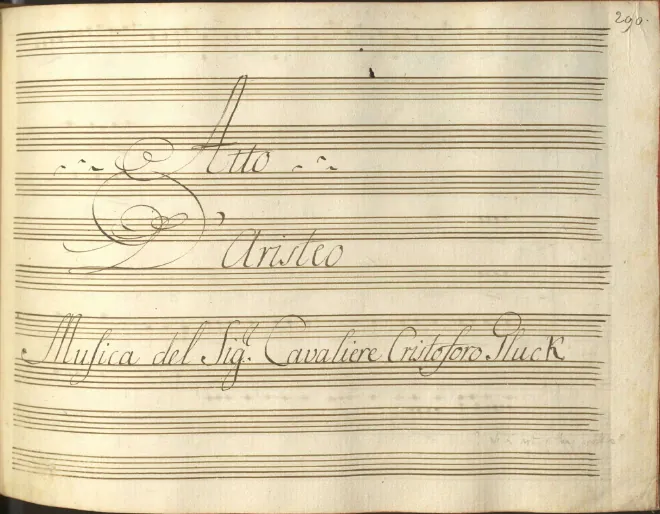 290.
Atto
D'aristeo
Musica del Sig.r Cavaliere Cristoforo Gluck